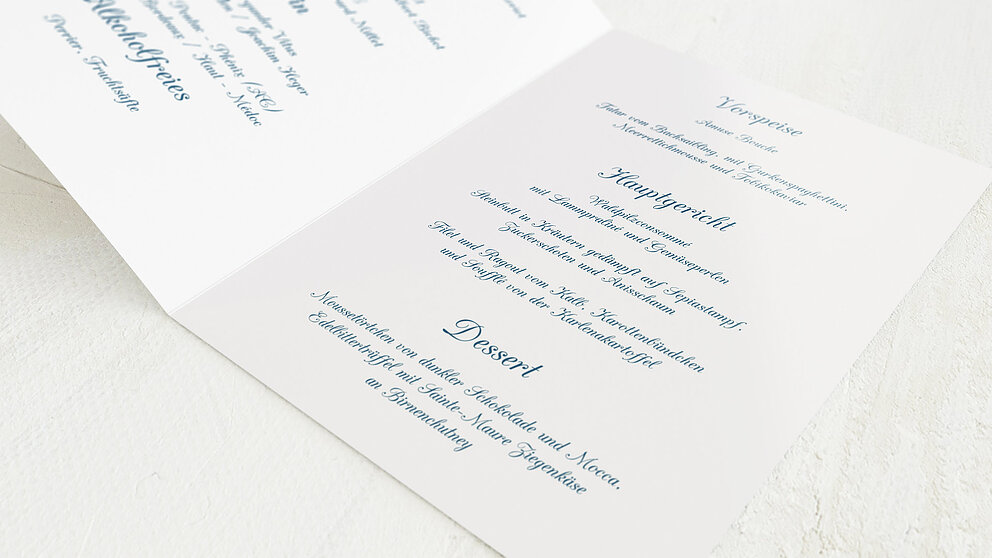 in
Vitus
/ Joachim Heger
- Phénix (AC)
Bordeaux / Haut - Médoc
Alkoholfreies
Perrier, Fruchtsäfte
Vorspeise
Amuse Bouche
Tatar vom Bachsaibling, mit Gurkenspaghettini,
Meerrettichmousse und Tobikokaviar
Hauptgericht
Waldpilzconsommé
mit Lammpraliné und Gemüseperlen
Steinbutt in Kräutern gedämpft auf Sepiastampf,
Zuckerschoten und Anisschaum
Filet und Ragout vom Kalb, Karottenbündchen
und Soufflé von der Karlenakartoffel
Dessert
Moussetörtchen von dunkler Schokolade und Mocca,
Edelbittertrüffel mit Sainte-Maure Ziegenkäse
an Birnenchutney